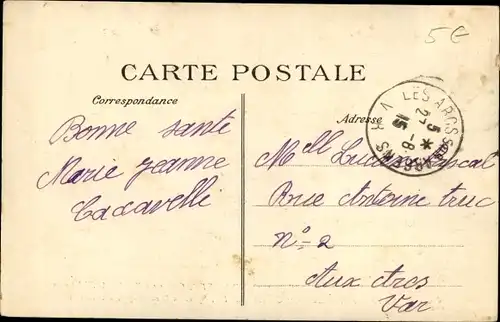 5€
CARTE POSTALE
Correspondance
Adresse
LES ARCS S
5 - 8
15
VAR
Bonne santé
Marie Jeanne
Mell
Rue Antoine truc
N°= 2
Aux Arcs
Var